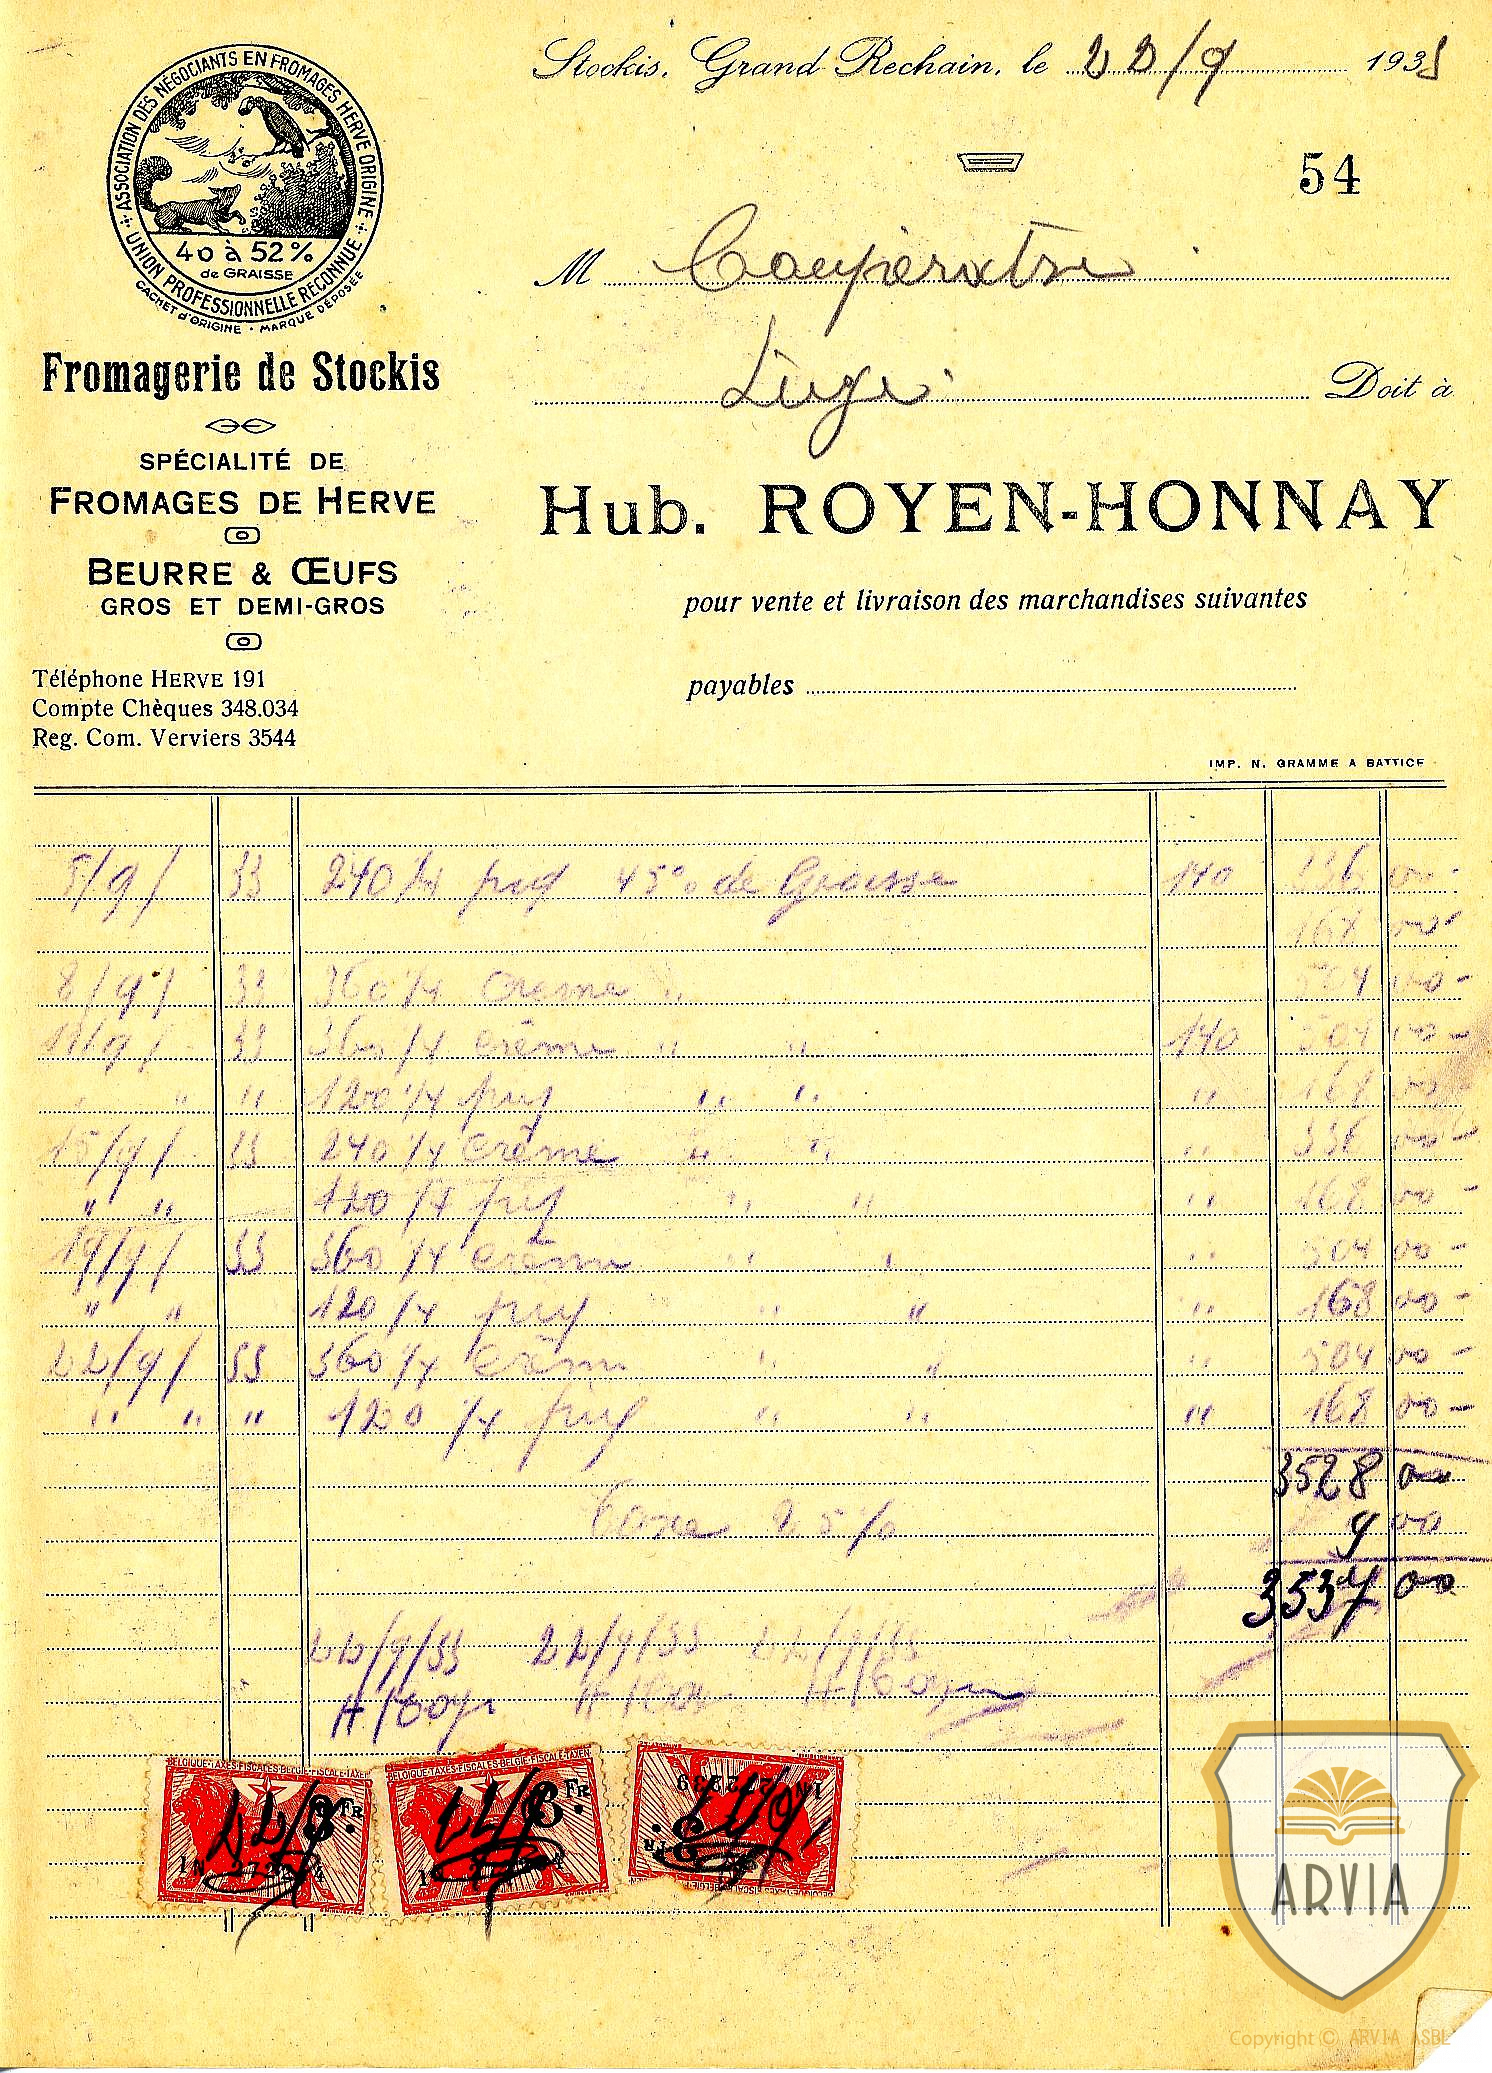 ASSOCIATION DES NÉGOCIANTS EN FROMAGES HERVE ORIGINE
UNION PROFESSIONNELLE RECONNUE
40 à 52%
de GRAISSE
CACHET d'ORIGINE • MARQUE DÉPOSÉE
Stockis, Grand Rechain, le 22/9 193
54
M Coopérative
Liège
Doit à
Fromagerie de Stockis
SPÉCIALITÉ DE
FROMAGES DE HERVE
BEURRE & ŒUFS
GROS ET DEMI-GROS
Téléphone HERVE 191
Compte Chèques 348.034
Reg. Com. Verviers 3544
Hub. ROYEN-HONNAY
pour vente et livraison des marchandises suivantes
payables
IMP. N. GRAMME A BATTICE
5/9/ 240 1/4 45% de Graisse 140 336 00
168 00
8/9/ 360 1/4 Creme 504 00 -
360 1/4 crème " " 140 504 00 -
" " 120 1/4 " " " 168 00
15/9/ 240 1/4 crème " " " 336 00
" " 120 1/4 " " " 168 00 -
19/9/ 360 1/4 crème " " " 504 00 -
" " 120 1/4 " " " 168 00 -
22/9/ 360 1/4 crème " " " 504 00 -
" " " 120 1/4 " " " 168 00 -
3528 00
Taxe 2 5% 9 00
3537 00
22/9/33 22/9/33 22/9/33
BELGIQUE·TAXES FISCALES·BELGIE·FISCALE TAXEN
BELGIQUE·TAXES FISCALES·BELGIE·FISCALE TAXEN
22/9 FR. 22/9 3 FR. 22/9
ARVIA
Copyright © ARVIA ASBL